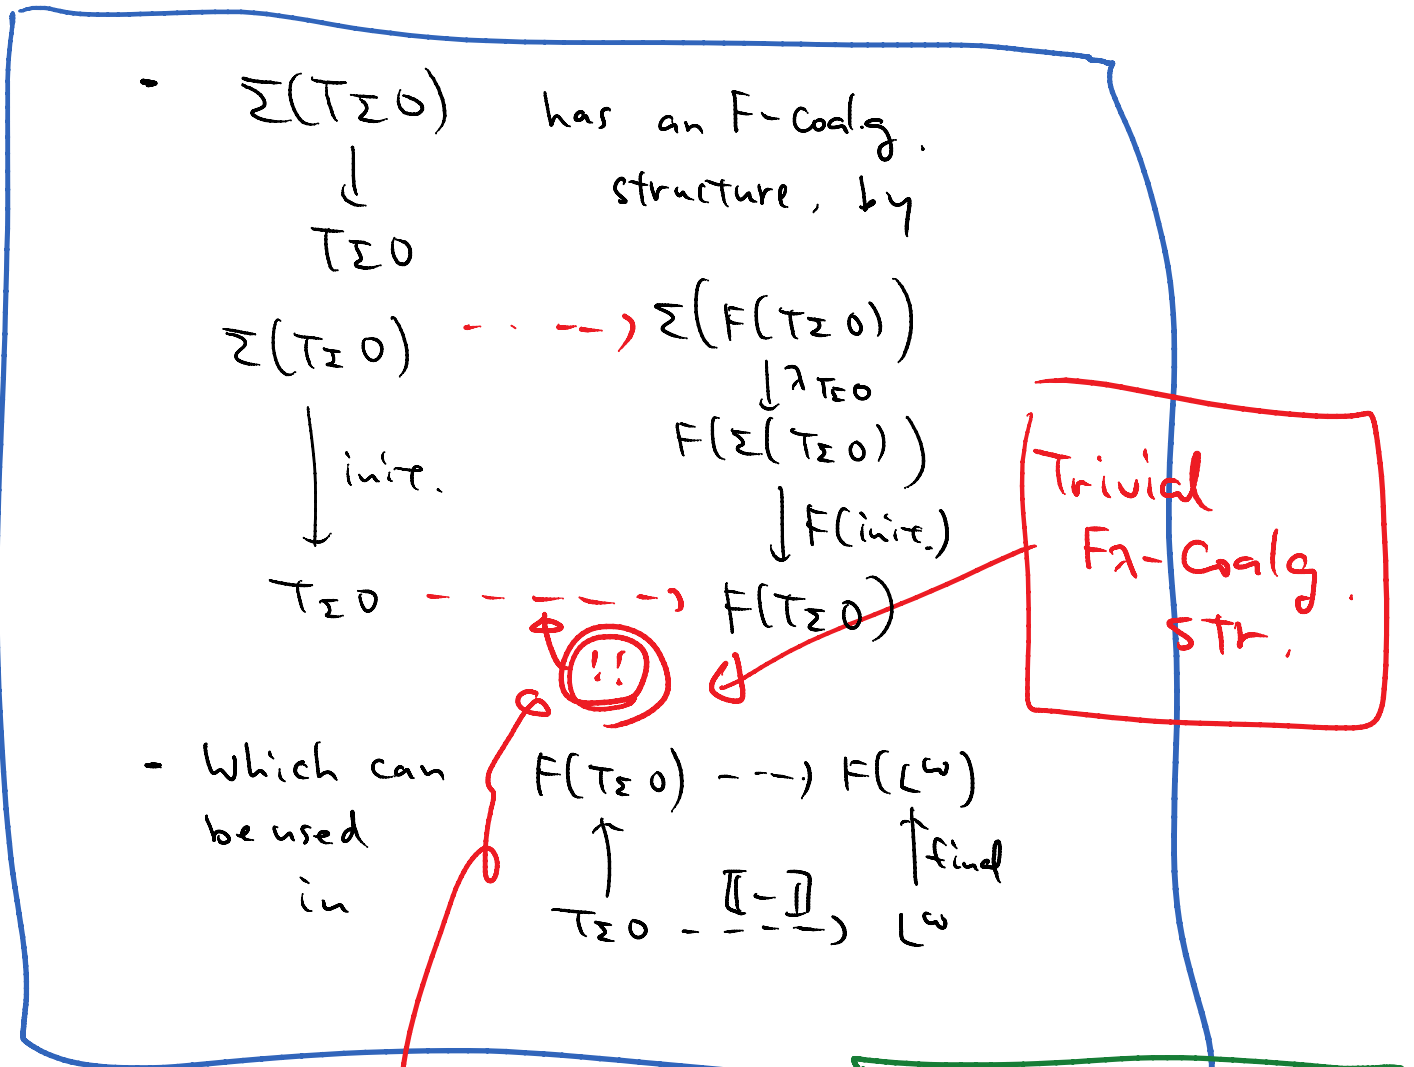 - Σ(T_Σ 0) has an F-Coalg.
↓ structure, by
T_Σ 0
Σ(T_Σ 0) ⇢ Σ(F(T_Σ 0))
↓ λ_{T_Σ 0}
F(Σ(T_Σ 0))
↓ init. ↓ F(init.)
T_Σ 0 ⇢ F(T_Σ 0)
!!
Trivial
Fλ-Coalg.
str.
- Which can F(T_Σ 0) ⇢ F(L^ω)
be used ↑ ↑ final
in T_Σ 0 ⇢ L^ω
⟦-⟧